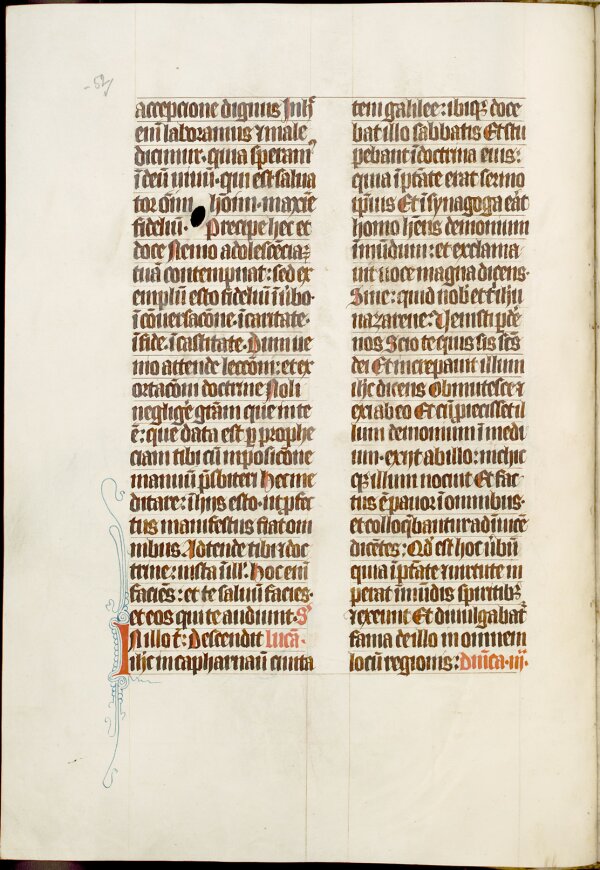 52
accepcione dignus Inh̄
eni᷑ laboramus ⁊ male
dicimur·quia speram᷑
ī deū uiuū·qui est salua
tor om̄ hominū·maxīe
fideliū· Precipe hec et
doce Nemo adolescēciaꝫ
tuā contempnat: sed ex
emplū esto fideliū ī ūbo·
ī cōuersacōne·ī caritate·
ī fide·ī castitate·Dum ue
nio attende leccōni: et ex
ortacōni doctrine Noli
neglige᷑ grām que in te
ē: que data est ꝑ prophe
ciam tibi cū inposicōne
manuū p̄sbiteri Hec me
ditare: ī hijs esto·ut ꝓfec
tus manifestus fiat om
nibus·Adtende tibi ⁊ doc
trine: insta ī ill᷑·Hoc eni᷑
faciēs: et te saluū facies·
et eos qui te audiunt·S᷑
IN illo t̄: Descendit lucā·
ih̄c in capharnaū ciuita
tem galilee: ibiqꝫ doce
bat illos sabbatis Et stu
pebant ī doctrina eius:
quia ī ptāte erat sermo
ipīus Et ī synagoga eāt
homo hn̄s demonium
inmūdum: et exclama
uit uoce magna dicens·
Sine: quid nob et t ih̄u
nazarene: Uenisti pde᷑
nos Scio te quis sis sc̄s
dei Et increpauit illum
ih̄c dicens Obmutesce ⁊
exi ab eo Et cū ꝓiecisset il
lum demonium ī medi
um·exijt ab illo: nichil
qꝫ illum nocuit Et fac
tus ē pauor ī omnibus·
et colloq̄bantur adinuicē
dicētes: Qd᷑ est hoc ūbū
quia ī ptāte ⁊ uirtute im
perat inmūdis spiritibꝫ
⁊ exeunt Et diuulgabat᷑
fama de illo in omnem
locū regionis: Dn̄ica·iij·